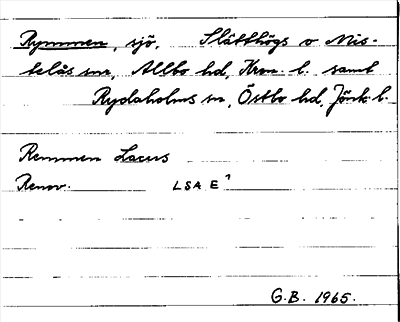 Rymmen, sjö. Slätthögs o Mis-
telås snr, Allbo hd, Kron. l. samt
Rydaholms sn, Östbo hd, Jönk. l.
Remmen Lacus
Renov. LSA E 1
G.B. 1965.